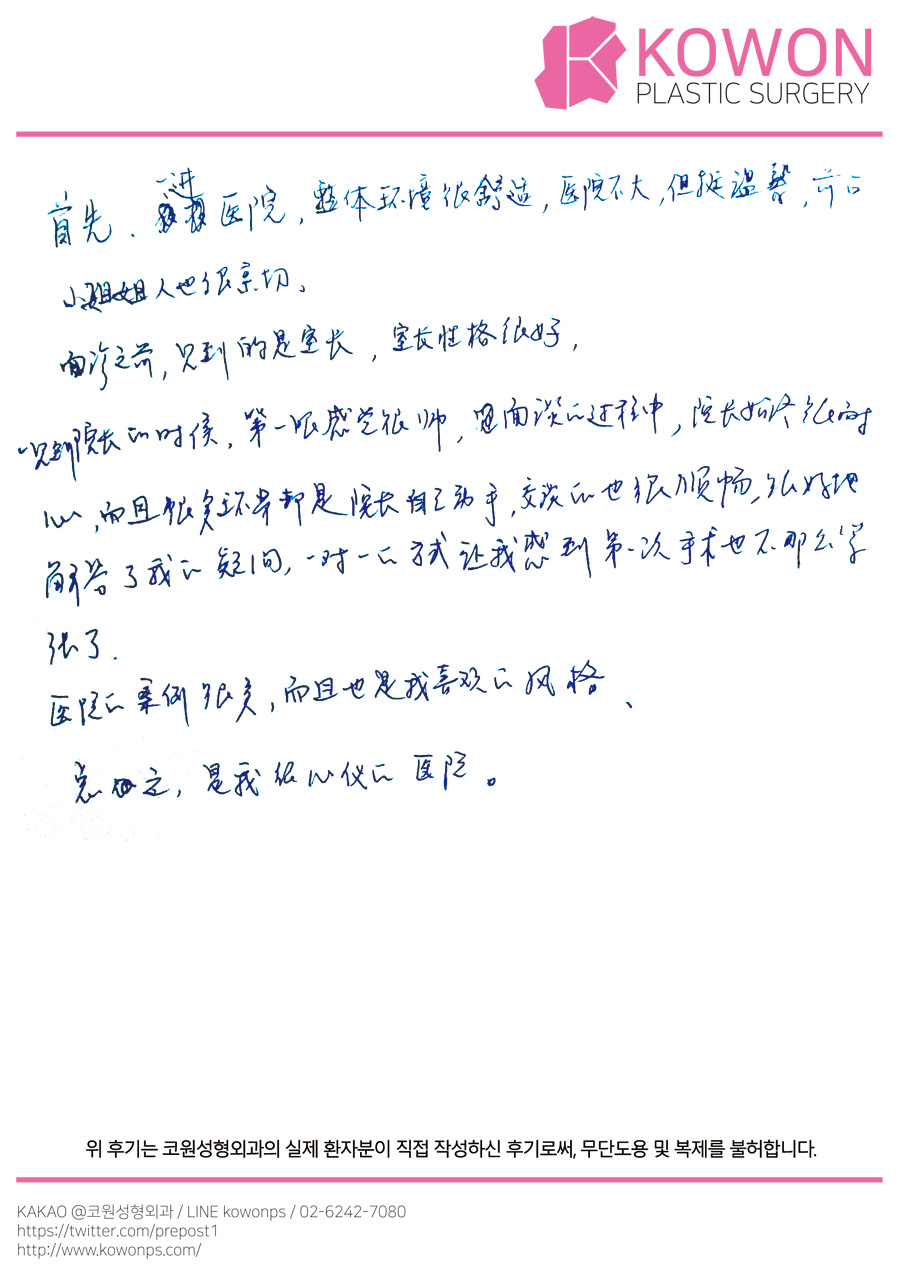 KOWON
PLASTIC SURGERY
首先、一进医院，整体环境很舒适，医院不大，但挺温馨，前台
小姐姐人也很亲切、
面诊之前，见到的是室长，室长性格很好，
见到院长的时候，第一眼感觉很帅，面谈的过程中，院长始终很耐
心，而且很多环节都是院长自己动手，交谈的也很顺畅、很好地
解答了我的疑问，一对一的方式让我感到第一次手术也不那么紧
张了.
医院的案例很多，而且也是我喜欢的风格、
总之，是我很心仪的医院。
위 후기는 코원성형외과의 실제 환자분이 직접 작성하신 후기로써, 무단도용 및 복제를 불허합니다.
KAKAO @코원성형외과 / LINE kowonps / 02-6242-7080
https://twitter.com/prepost1
http://www.kowonps.com/